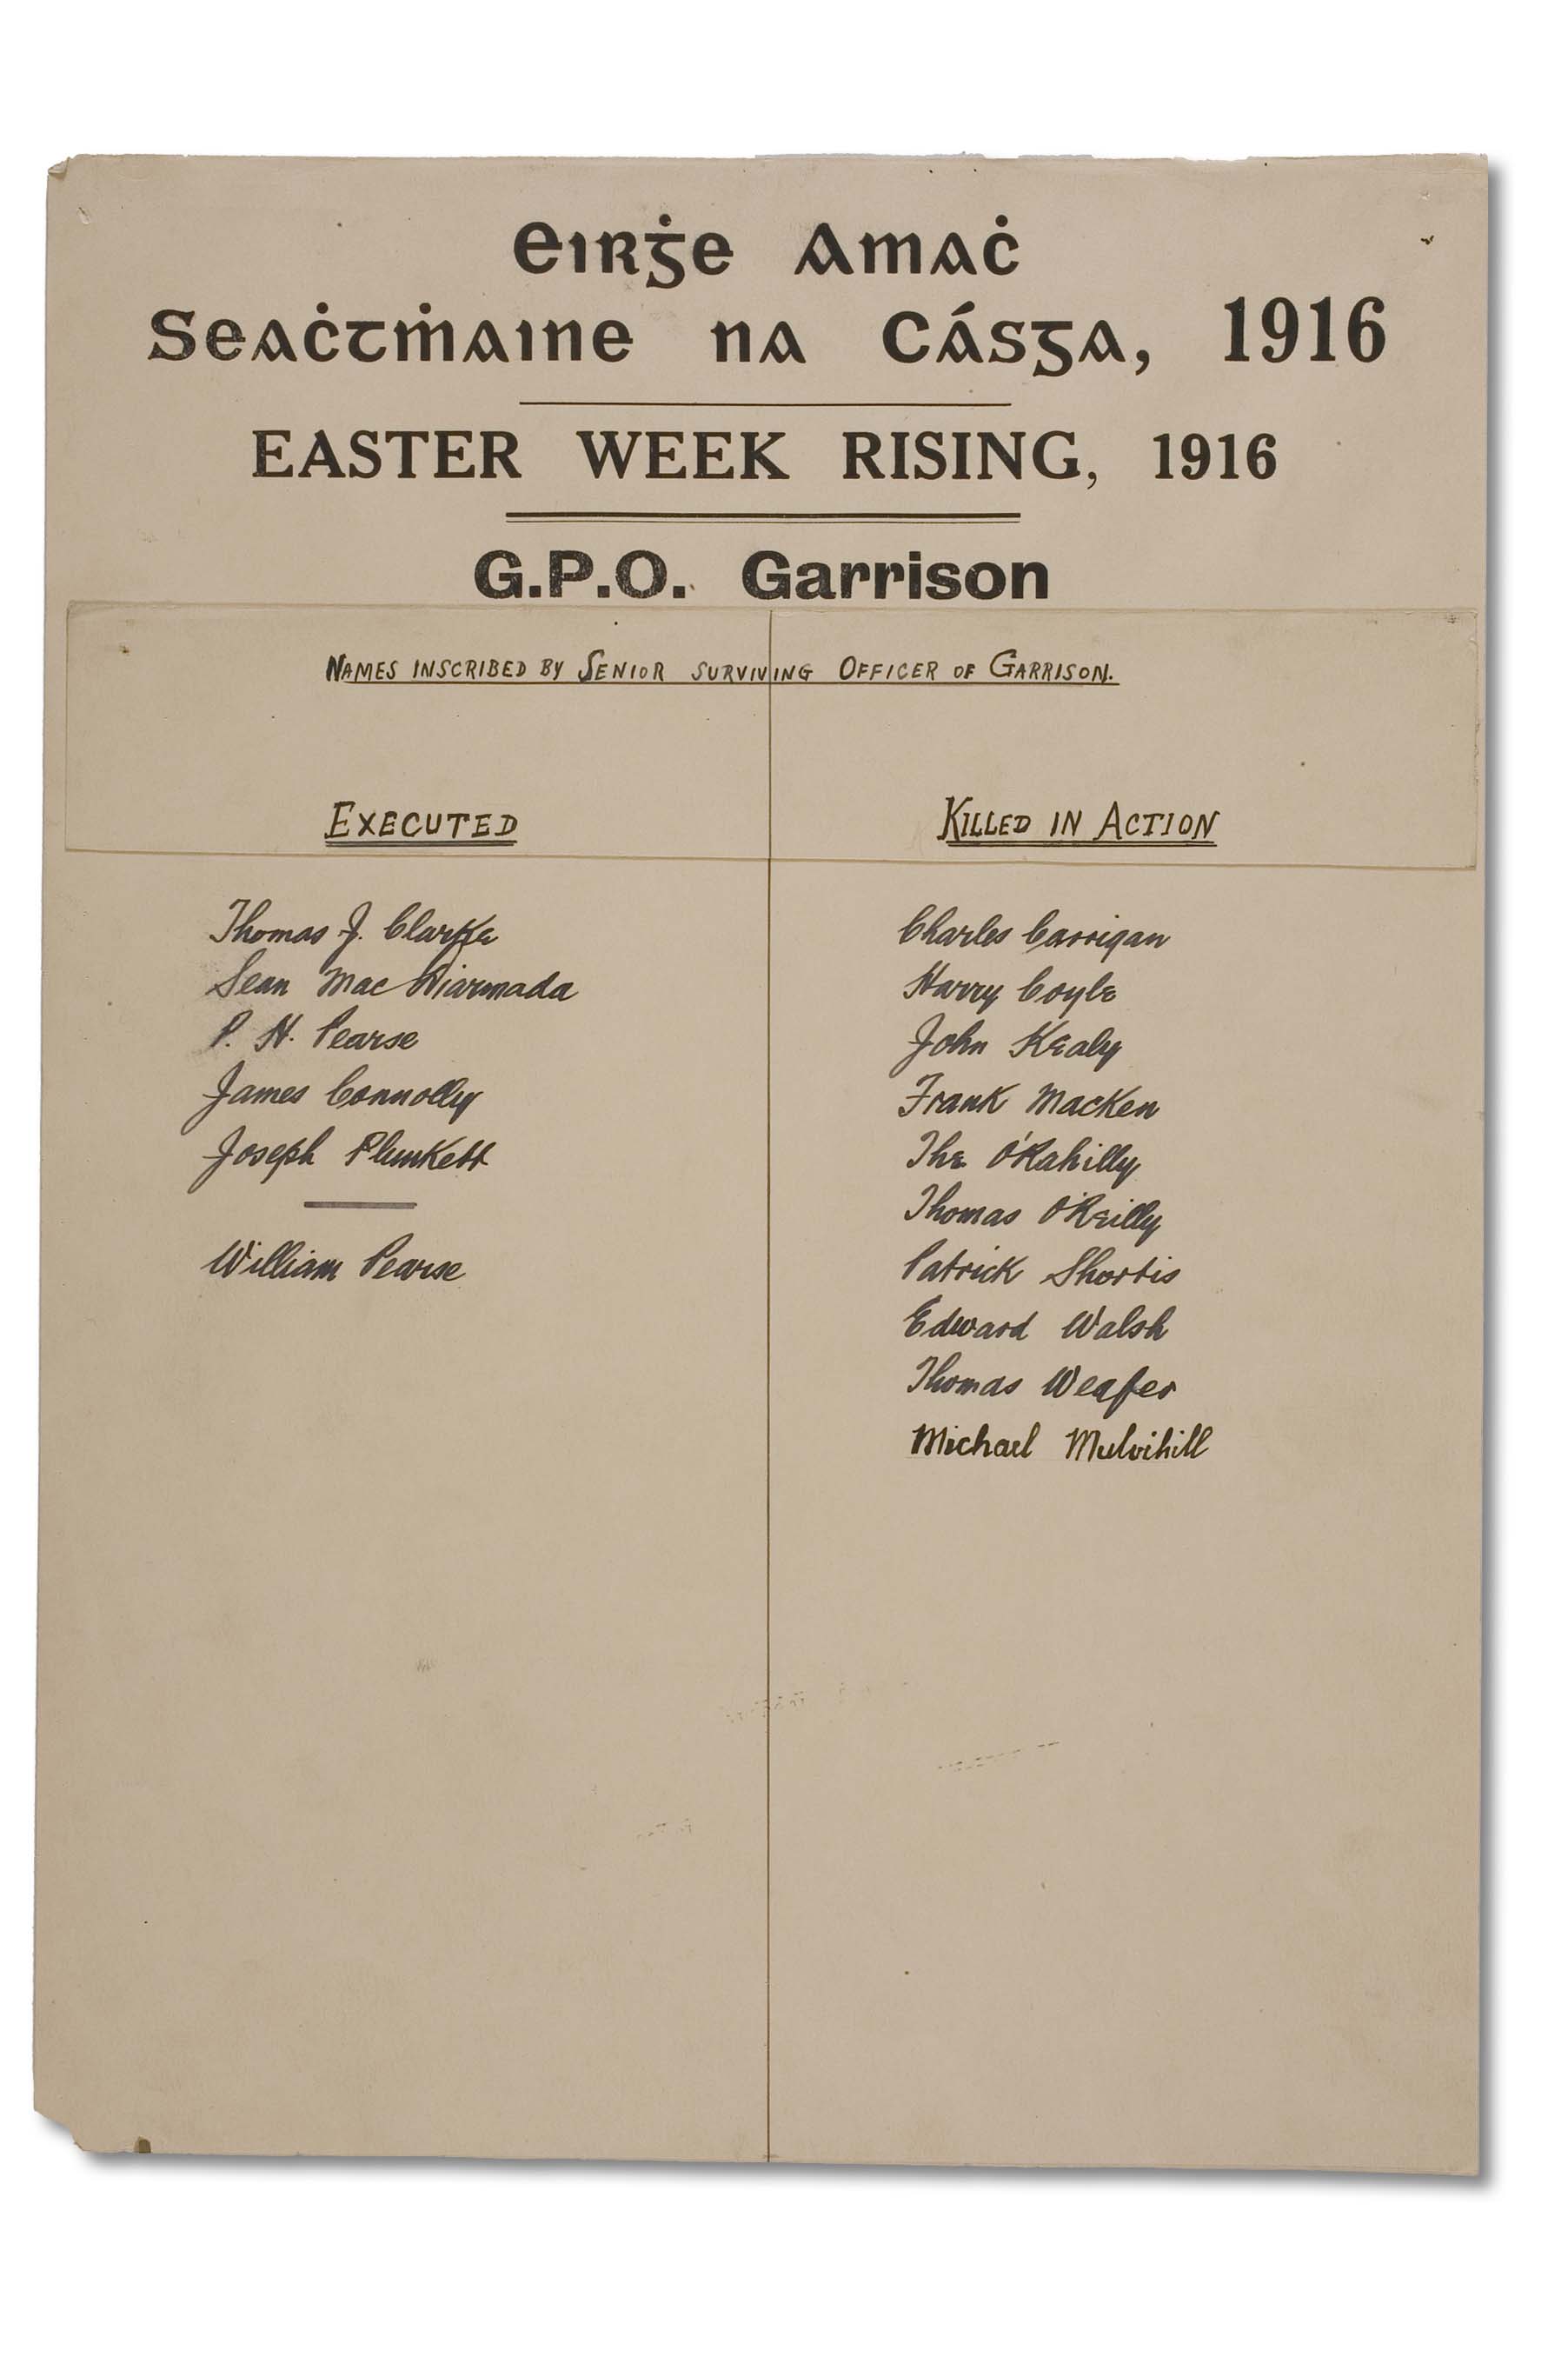 Eirġe Amaċ
Seaċtṁaine na Cásga, 1916
EASTER WEEK RISING, 1916
G.P.O. Garrison
NAMES INSCRIBED BY SENIOR SURVIVING OFFICER OF GARRISON.
EXECUTED
Thomas J. Clarke
Sean Mac Diarmada
P. H. Pearse
James Connolly
Joseph Plunkett
William Pearse
KILLED IN ACTION
Charles Carrigan
Harry Coyle
John Kealy
Frank Macken
The O'Rahilly
Thomas O'Reilly
Patrick Shortis
Edward Walsh
Thomas Weafer
Michael Mulvihill